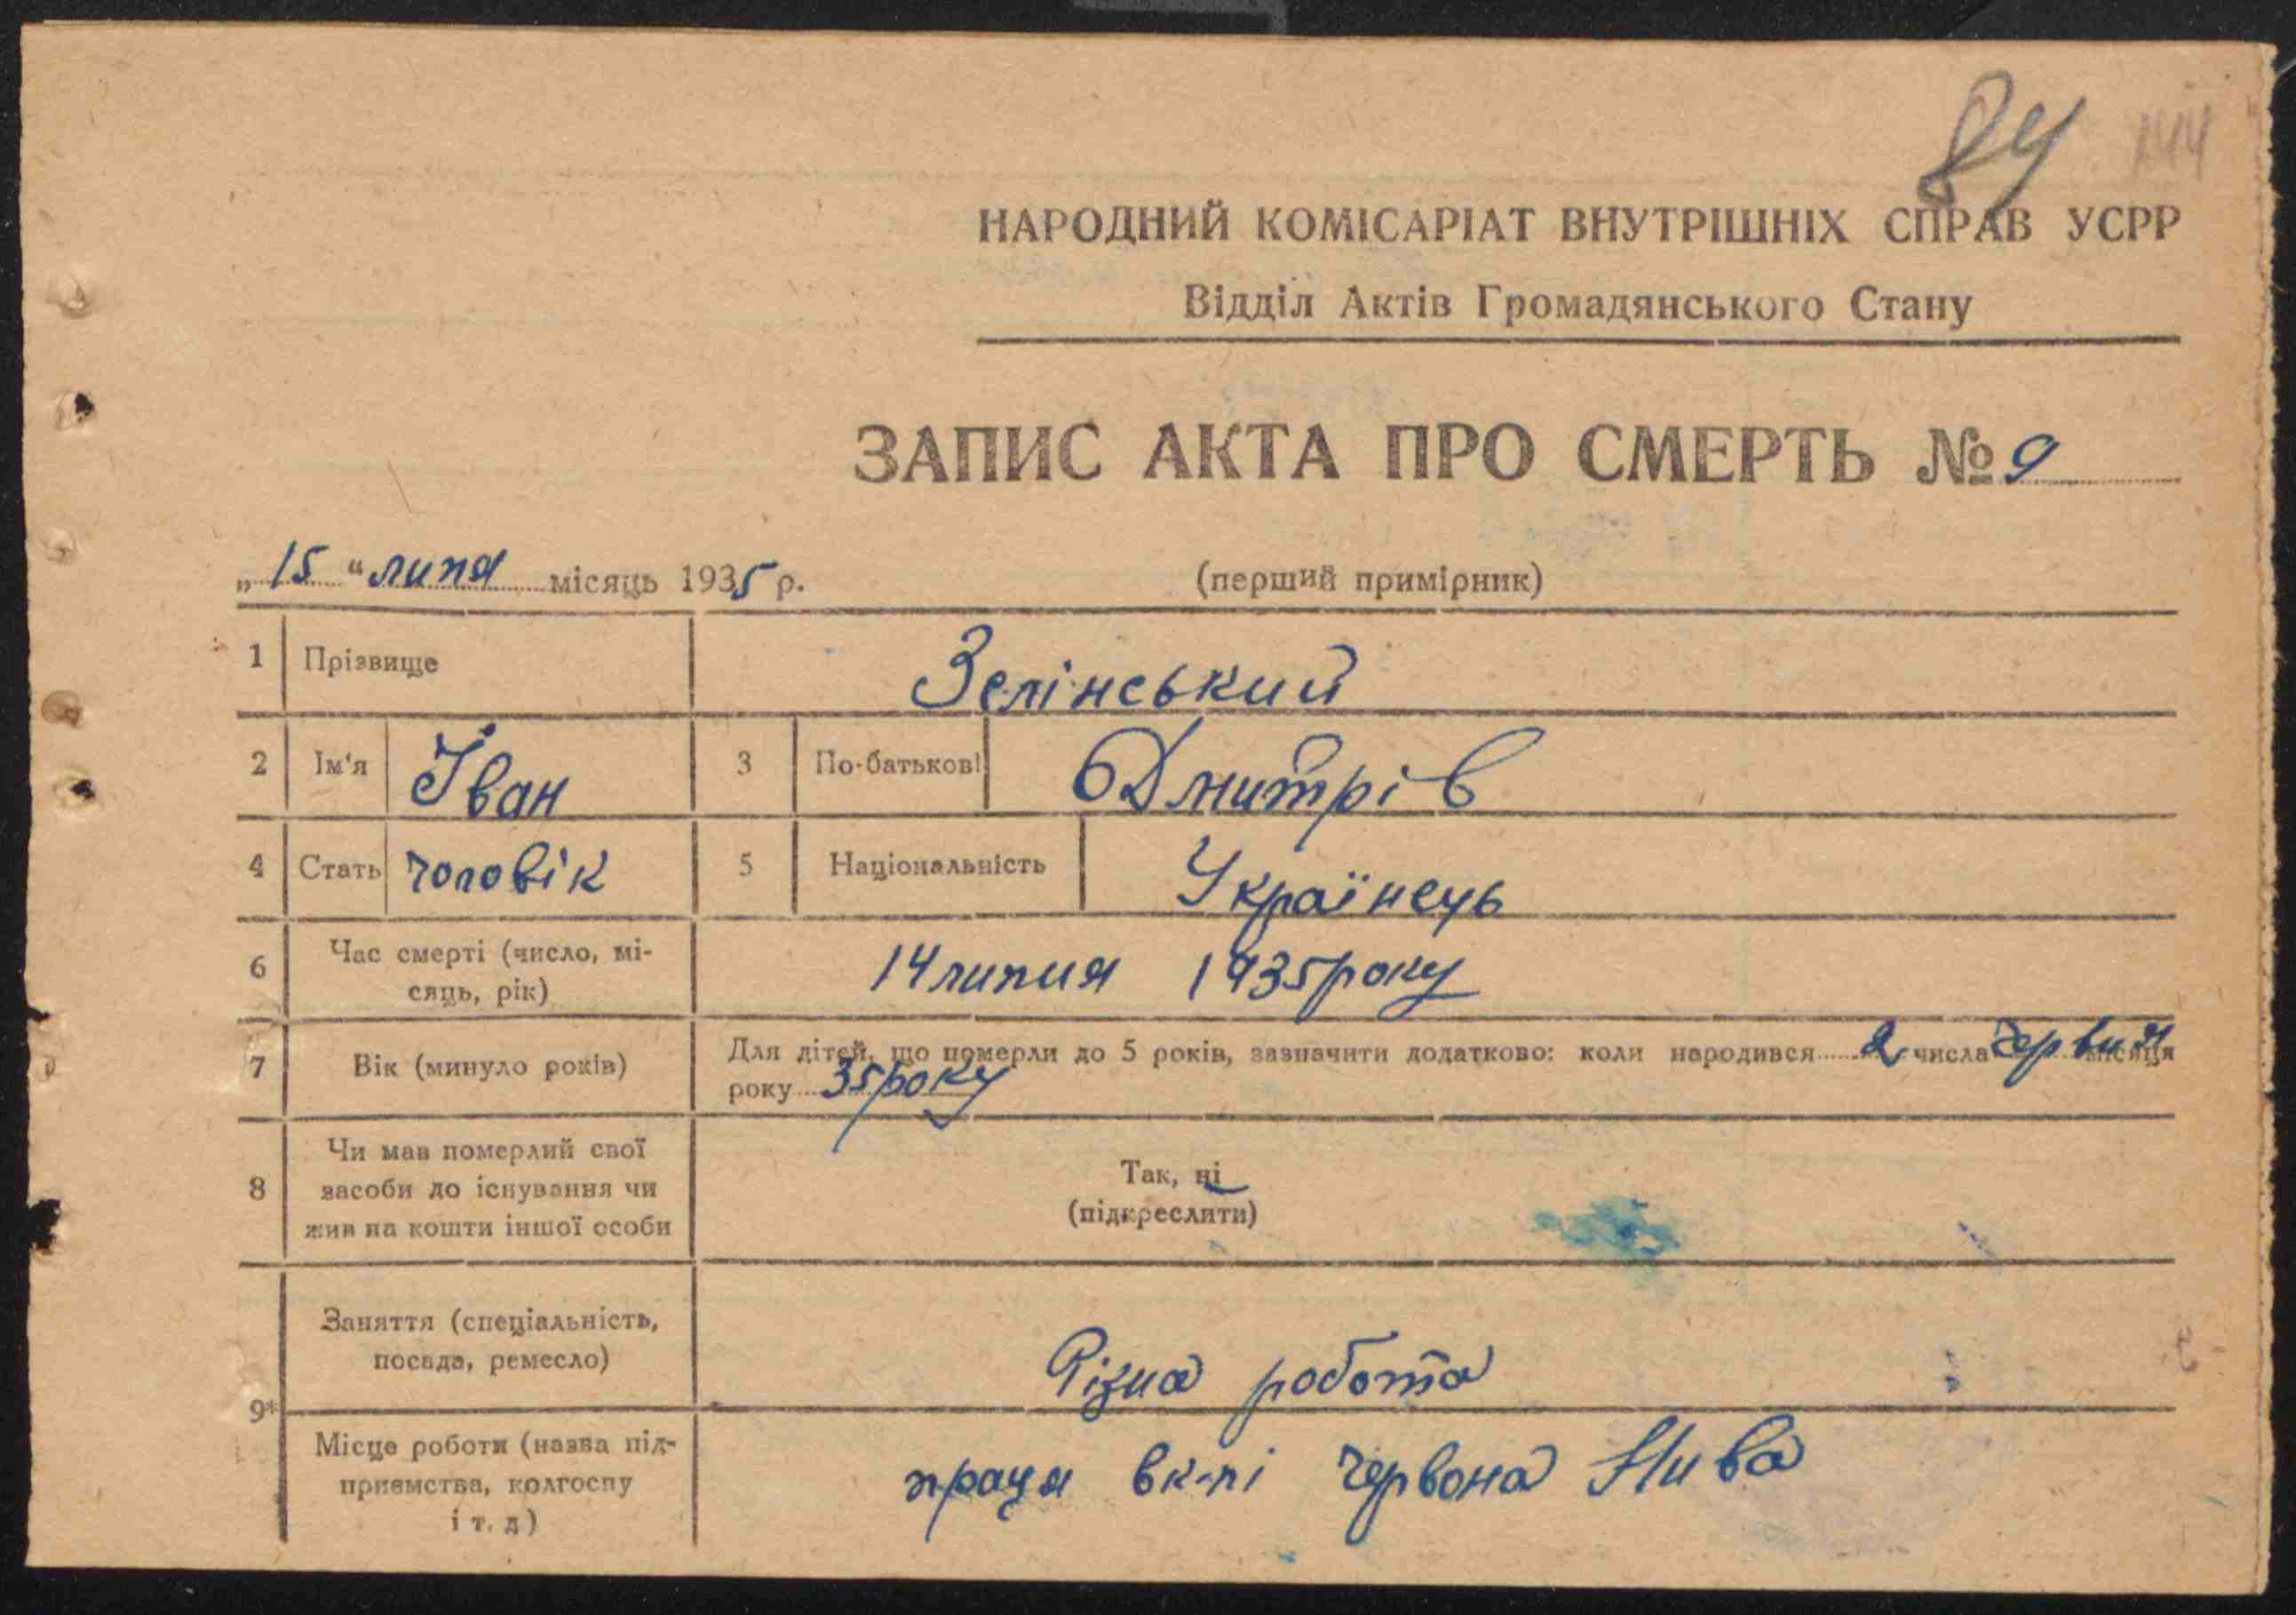 84 144
НАРОДНИЙ КОМІСАРІАТ ВНУТРІШНІХ СПРАВ УСРР
Відділ Актів Громадянського Стану
ЗАПИС АКТА ПРО СМЕРТЬ № 9
„15“ липя місяць 1935 р.
(перший примірник)
1 Прізвище Зелінський
2 Ім'я Іван 3 По-батькові Дмитрів
4 Стать чоловік 5 Національність Українець
6 Час смерті (число, мі-
сяць, рік) 14 липня 1935 року
7 Вік (минуло років) Для дітей, що померли до 5 років, зазначити додатково: коли народився 2 числа червня місяця
року 35 року
8 Чи мав померлий свої
засоби до існування чи
жив на кошти іншої особи
Так, ні
(підкреслити)
9 Заняття (спеціальність,
посада, ремесло) Різна робота
Місце роботи (назва під-
приємства, колгоспу
і т. д) праця в к-пі Червона Нива